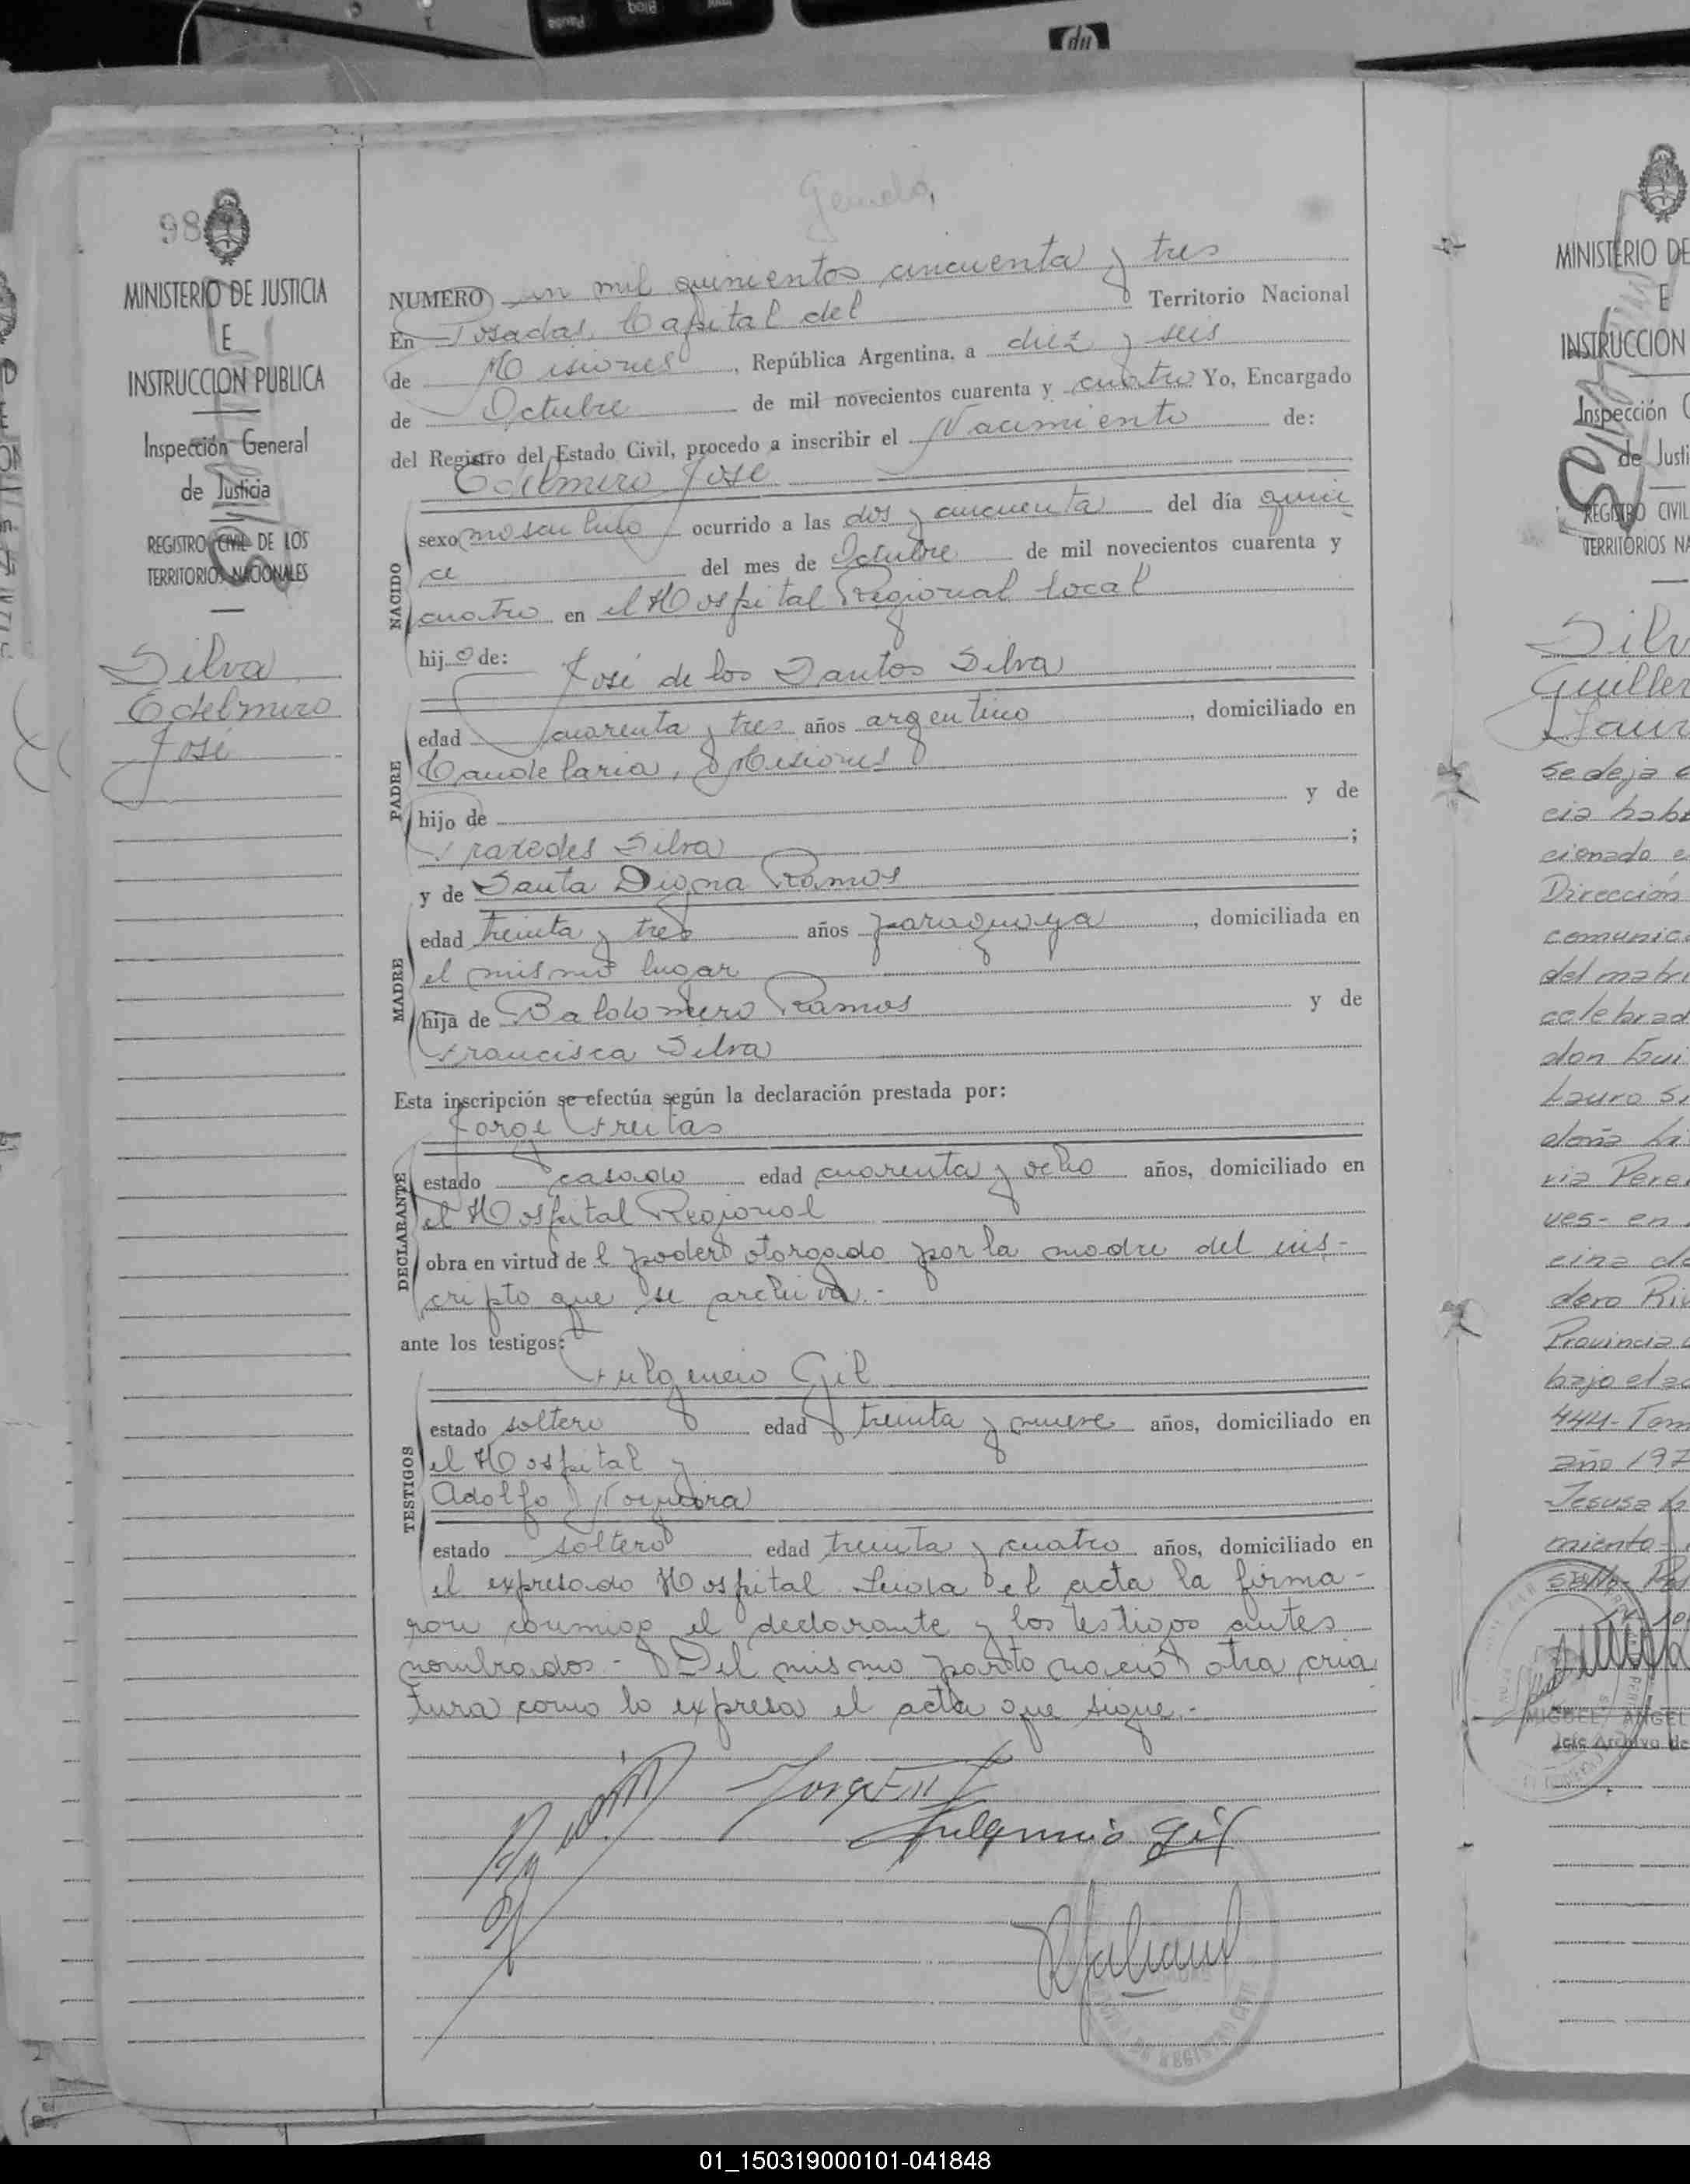 Gemelo,
98
MINISTERIO DE JUSTICIA
E
INSTRUCCION PUBLICA
Inspección General
de Justicia
REGISTRO CIVIL DE LOS
TERRITORIOS NACIONALES
Silva
Edelmiro
José
NUMERO un mil quinientos cincuenta y tres
En Posadas, Capital del Territorio Nacional
de Misiones, República Argentina, a diez y seis
de Octubre de mil novecientos cuarenta y cuatro Yo, Encargado
del Registro del Estado Civil, procedo a inscribir el Nacimiento de:
Edelmiro José
NACIDO
sexo masculino ocurrido a las dos y cincuenta del día quin
ce del mes de Octubre de mil novecientos cuarenta y
cuatro en el Hospital Regional local
hijo de: José de los Santos Silva
PADRE
edad cuarenta y tres años argentino, domiciliado en
Candelaria, Misiones
hijo de y de
Praxedes Silva;
y de Santa Digna Ramos
MADRE
edad treinta y tres años paraguaya, domiciliada en
el mismo lugar
hija de Baldomero Ramos y de
Francisca Silva
Esta inscripción se efectúa según la declaración prestada por:
Jorge Freitas
DECLARANTE
estado casado edad cuarenta y ocho años, domiciliado en
el Hospital Regional
obra en virtud del poder otorgado por la madre del ins-
cripto que se archiva.-
ante los testigos:
Fulgencio Gil
TESTIGOS
estado soltero edad treinta y nueve años, domiciliado en
el Hospital y
Adolfo
estado soltero edad treinta y cuatro años, domiciliado en
el expresado Hospital. Leida el acta la firma-
ron conmigo el declarante y los testigos antes
nombrados.- Del mismo parto nació otra cria
tura como lo expresa el acta que sigue.-
Fulgencio Gil
MINISTERIO DE
E
INSTRUCCION
Inspección
de Justi
REGISTRO CIVIL
TERRITORIOS NA
Silv
Guiller
Laur
se deja
cia hab
cionado
Dirección
comunic
del matri
celebrad
don Gui
Lauro Si
doña
ria Pere
ves- en
cina de
doro Riv
Provincia
bajo el ac
444- Tom
año 197
Jesusa
miento-
MIGUEL ANGEL
Jefe Archivo de
01_150319000101-041848